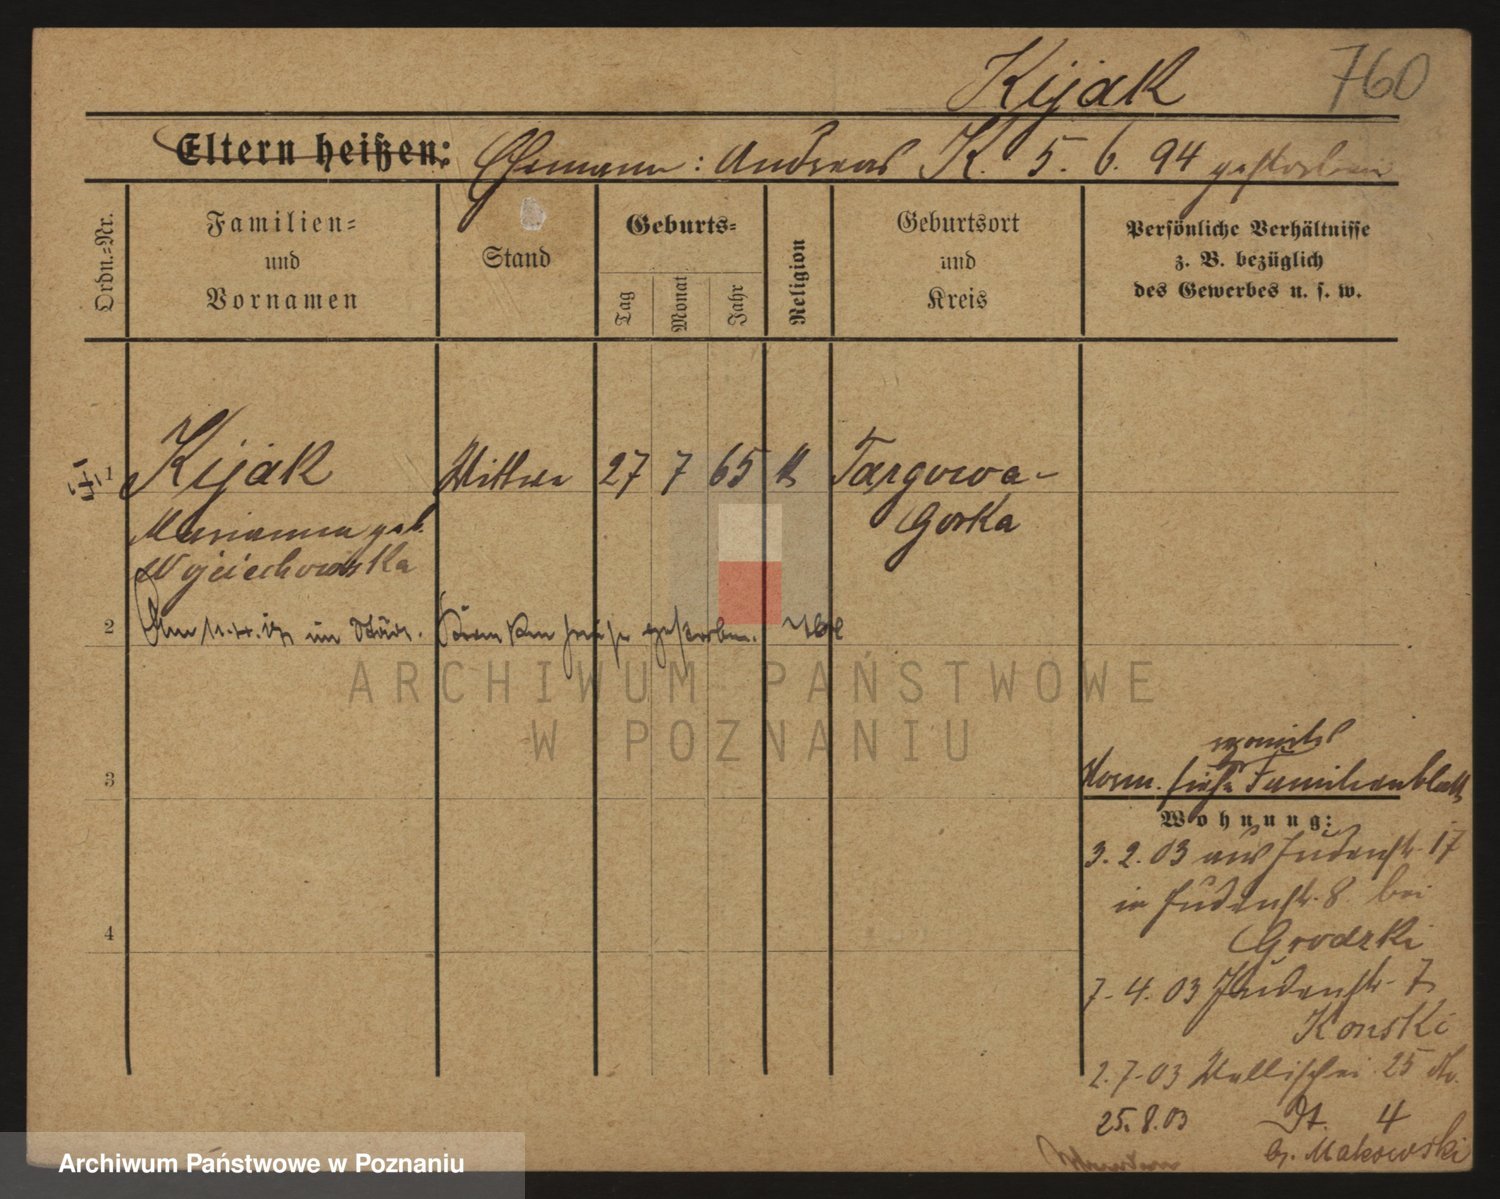 Kijak 760
Eltern heißen: Ehemann: Andreas K. 5. 6. 94 gestorben
Ordn.-Nr.
Familien-
und
Vornamen
Stand
Geburts-
Tag
Monat
Jahr
Religion
Geburtsort
und
Kreis
Persönliche Verhältnisse
z. B. bezüglich
des Gewerbes u. s. w.
1 Kijak Wittwe 27 7 65 k Targowa-
Marianna geb. Gorka
Wojciechowska
2 Am im Städt. Krankenhause gestorben.
3
4
Vorm. siehe Familienblatt
Wohnung:
3. 2. 03 aus Judenstr. 17
in Judenstr. 8 bei
Grodzki
7. 4. 03 Judenstr. 7
Konski
2. 7. 03 Wallischei 25
25. 8. 03 4
Makowski
ARCHIWUM PAŃSTWOWE
W POZNANIU
Archiwum Państwowe w Poznaniu